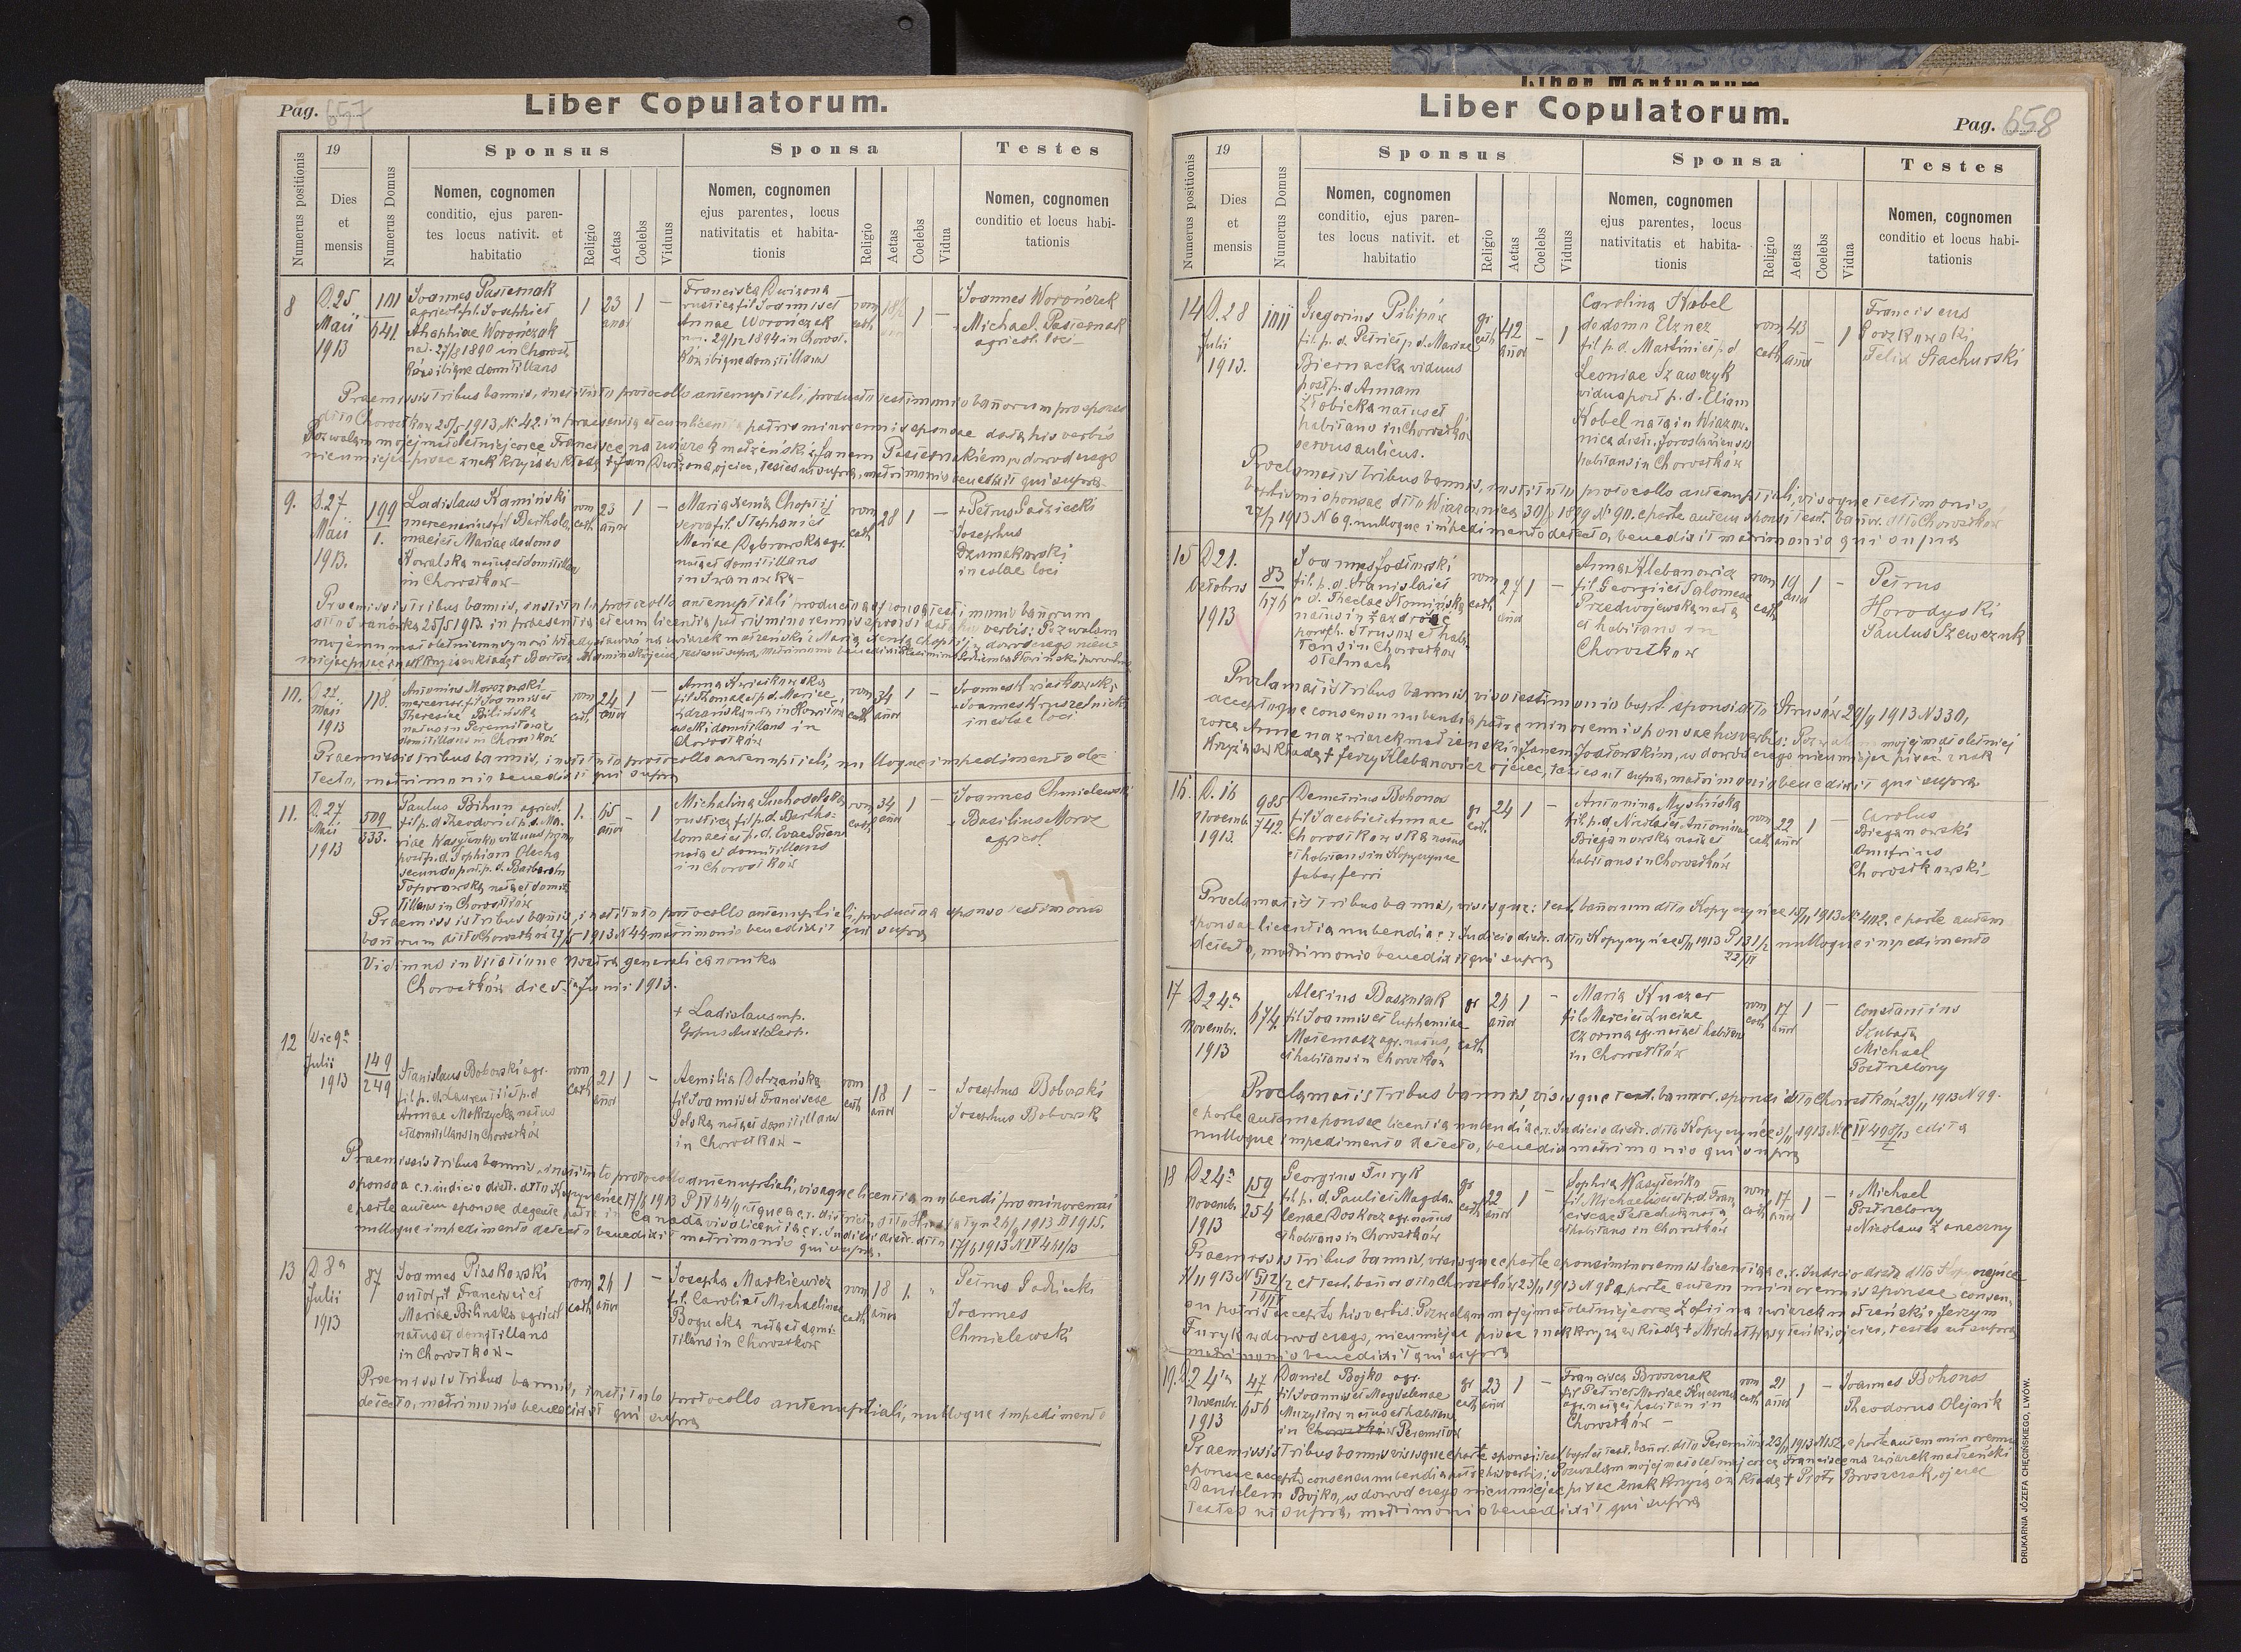 Pag. 657
Liber Copulatorum.
Numerus positionis
19
Dies
et
mensis
Numerus Domus
Sponsus
Nomen, cognomen
conditio, ejus paren-
tes locus nativit. et
habitatio
Religio
Aetas
Coelebs
Viduus
Sponsa
Nomen, cognomen
ejus parentes, locus
nativitatis et habita-
tionis
Religio
Aetas
Coelebs
Vidua
Testes
Nomen, cognomen
conditio et locus habi-
tationis
8
D. 25
Maii
1913
101
641
Joannes Pasiernak
agricol. fil. Josephi et
Worończak
nat. 27/8 1890 in Chorost-
ków ibique domitillans
1
23
annor
1
–
Francisca Dwizona
rustica fil. Joannis et
Annae Worończak
29/12 1894 in Chorost-
ków ibique domitillans
rom
cath
18½
1
–
Joannes Worończak
Michael Pasiernak
agricol. loci –
Praemissis tribus bannis, instituto protocollo antenuptiali, producto testimonio bannorum pro sponso
dtto Chorostków 25/5 1913, N. 42. in praesentia et cum licentia patris minorennis sponsae data his verbis
Pozwalam mojej małoletniej córce Francisce na związek małżeński z Janem Pasiernakiem, w dowód czego
nieumiejąc pisać znak krzyża kładę + Jan Dwizona, ojciec, testes ut supra, matrimonio benedixit qui supra
9.
D. 27
Maii
1913.
199
1.
Ladislaus Kamiński
mercenarius fil. Bartholo-
maei et Mariae de domo
Kowalska natus et domitillans
in Chorostków –
rom
cath
23
annor
1
–
Maria Xenia Choptij
serva fil. Stephani et
Mariae Dąbrowska agr.
nata et domitillans
in Iwanówka –
rom
cath
28
1
–
+ Petrus Sadziecki
Josephus
Dzumakowski
incolae loci
Praemissis tribus bannis, instituto protocollo antenuptiali producto a sponsa testimonio bannorum
dtto Iwanówka 25/5 1913. in praesentia et cum licentia patris minorennis sponsi data his verbis: Pozwalam
mojemu małoletniemu synowi Władysławowi na związek małżeński z Maria Xenia Choptij, w dowód czego nieu-
miejąc pisać znak krzyża kładę + Bartosz Kamiński ojciec, testes ut supra, matrimonio benedixit
10.
D 27
Maii
1913
118.
Antonius Morozowski
mercenar. fil. Joannis et
Theresiae Bilińska
natus in Peremiłow
domitillans in Chorostków
rom
cath
24
annor
1
–
Anna Kwiatkowska
fil. Thomae et p. d. Mariae
domitillans in
Chorostków
rom
cath
34
annor
1
–
Joannes Kwiatkowski
Joannes Krzeselnicki
incolae loci
Praemissis tribus bannis, instituto protocollo antenuptiali, nulloque impedimento de-
tecto, matrimonio benedixit qui supra
11.
D. 27
Maii
1913
509
333.
Paulus Bihun agricol.
fil. p. d. Theodori et p. d. Ma-
riae Wasyłenko viduus primo
post p. d. Sophiam Olecha
secundo post p. d. Barbaram
Toporowska natus et domi-
tillans in Chorostków
1.
65
annor
–
1
Michalina Suchodolska
rustica fil. p. d. Bartho-
lomaei et p. d. Evae
nata et domitillans
in Chorostków
rom
cath
34
annor
1
–
Joannes Chmielewski
+ Basilius Moroz
agricol.
Praemissis tribus bannis, instituto protocollo antenuptiali, producto a sponso testimonio
bannorum dtto Chorostków 27/5 1913 N 44 matrimonio benedixit qui supra
Vidimus in Visitatione Nostra generali canonika
Chorostków die 5. Junii 1913.
+ Ladislaus mp.
Eppus Aux. Leop.
12
Die 9a
Julii
1913
149
249
Stanislaus Boborski agr.
fil. p. d. Laurentii et p. d
Annae Mokrzycka natus
et domitillans in Chorostków
rom
cath
21
annor
1
–
Aemilia Dobrzańska
fil. Joannis et Franciscae
Solska nata et domitillans
in Chorostków –
rom
cath
18
annor
1
–
Josephus Boborski
Josephus Boborski
Praemissis tribus bannis, instituto protocollo antenuptiali, visaque licentia nubendi pro minorenni
sponso a c. r. iudicio distr. dtto Kopyczyńce 17/6 1913
e parte autem sponsae degente patre in Canada visa licentia c. r. Iudicii distr. dtto 17/6 1913 N IV 461/13
nulloque impedimento detecto benedixit matrimonio qui supra.
13
D 8a
Julii
1913
87
Joannes Piaskowski
fil. Francisci et
Mariae Bilinska agricol
natus et domitillans
in Chorostków –
rom
cath
26
annor
1
–
Josepha Markiewicz
fil. Caroli et Michaelinae
Bogucka nata et domi-
tillans in Chorostków
rom
cath
18
annor
1.
"
Petrus Sadziecki
Joannes
Chmielewski
Praemissis tribus bannis, instituto protocollo antenuptiali, nulloque impedimento
detecto, matrimonio benedixit qui supra
Liber Mortuorum
Liber Copulatorum.
Pag. 658
Numerus positionis
19
Dies
et
mensis
Numerus Domus
Sponsus
Nomen, cognomen
conditio, ejus paren-
tes locus nativit. et
habitatio
Religio
Aetas
Coelebs
Viduus
Sponsa
Nomen, cognomen
ejus parentes, locus
nativitatis et habita-
tionis
Religio
Aetas
Coelebs
Vidua
Testes
Nomen, cognomen
conditio et locus habi-
tationis
14
D. 28
Julii
1913.
Gregorius Pilipów
fil. p. d. Petri et p. d. Mariae
Biernacka viduus
post p. d Annam
Złobicka natus et
habitans in Chorostków
servus aulicus.
gr
cath
42
annor
–
1
Carolina Kobel
de domo Elznez
fil p. d. Martini et p. d
Leoniae Szawczyk
vidua post p. d. Eliam
Kobel nata in Wiazow-
nica distr. Jaroslaviensis
habitans in Chorostków
rom
cath
43
annor
–
1
Franciscus
Gorzkowski
Felix Stachurski
Proclamatis tribus bannis, instituto protocollo antenuptiali, visoque testimonio
baptismi sponsae dtto Wiazownica 30/7 1899 N. 90. e parte autem sponsi test. bannor. dtto Chorostków
27/7 1913 N 69. nulloque impedimento detecto, benedixit matrimonio qui supra
15
D 21.
Octobris
1913
83
676
Joannes Jodłowski
fil. p. d. Stanislai et
p. d. Theclae Słomińska
natus in Zazdrość
paroch. Strusów et habi-
tans in Chorostków
stelmach
rom
cath
27
annor
1
–
Anna Klebanowicz
fil. Georgii et Salomeae
Przedwojewska nata
et habitans in
Chorostków
rom
cath
19
annor
1
–
Petrus
Horodyski
Paulus Szewczuk
Proclamatis tribus bannis viso testimonio bapt. sponsi dtto Strusów 29/9 1913 N 330,
acceptoque consensu nubendi a patre minorennis sponsae his verbis: Pozwalam mojej małoletniej
córce Annie na związek małżeński z Janem Jodłowskim, w dowód czego nieumiejąc pisać znak
krzyża kładę + Jerzy Klebanowicz ojciec, testes ut supra, matrimonio benedixit qui supra
16.
D. 16
Novemb.
1913.
985
742.
Demetrius Bohonos
fil Jacobi et Annae
Chorostkowska natus
et habitans in Kopyczyńce
faber ferri
gr
cath.
24
1
–
Antonina Myslińska
fil. p. d. Nicolai et Antoninae
Bieganowska nata et
habitans in Chorostków
rom
cath
22
annor
1
–
Carolus
Bieganowski
Dmitrius
Chorostkowski
Proclamatis tribus bannis, visisque: test. bannorum dtto Kopyczyńce 15/11 1913 N. 402. e parte autem
sponsae licentia nubendi a c. r. Iudicio distr. dtto Kopyczyńce 5/11 1913 P 131/2 nulloque impedimento
22/IV
detecto, matrimonio benedixit qui supra
17
D 24a
Novembr.
1913
674.
Alexius Baszniak
fil Joannis et Euphemiae
agr. natus,
et habitans in Chorostków
gr
cath
26
annor
1
–
Maria Kuczer
fil. Marci et Luciae
Czorna agr. nata et habitans
in Chorostków
rom
cath
17
annor
1
–
Constantinus
Szubata
Michael
Postrelony
Proclamatis tribus bannis, visisque test. bannor. sponsi dtto Chorostków 23/11 1913 N 99.
e parte autem sponsae licentia nubendi a c. r. Iudicio distr. dtto Kopyczyńce 3/11 1913 edita
nulloque impedimento detecto, benedixi matrimonio qui supra
18
D 24a
Novembr
1913
159
254
Georgius Furyk
fil p. d. Pauli et Magda-
lenae Doskocz agr. natus
et habitans in Chorostków
gr
cath
22
annor
1
–
Sophia Wasyłeńko
fil. Michaelis et p. d. Fran-
ciscae nata
et habitans in Chorostków
rom
cath
17
annor
1
–
+ Michael
Postrelony
+ Nicolaus Zaneczny
Praemissis tribus bannis, visisque e parte sponsi minorennis licentia c. r. Iudicio distr. dtto Kopyczyńce
7/11 1913 N 512/2 et test. bannor dtto Chorostków 23/11 1913 N 98 e parte autem minorennis sponsae consen-
su patris accepto his verbis: Pozwalam mojej małoletniej córce Zofii na związek małżeński z Jerzym
Furyk w dowód czego, nieumiejąc pisać znak krzyża kładę + Michał Wasyłeńko ojciec, testes ut supra
matrimonio benedixit qui supra
19.
D 24a
Novembr.
1913
47
656
Daniel Bojko agr.
fil Joannis et Magdalenae
Muzyka natus et habitans
in Chorostków Peremiłów
gr
cath
23
annor
1
–
Francisca Broszczak
fil Petri et Mariae Kuczma
agr. nata et habitan in
Chorostków –
rom
cath
21
annor
1
–
Joannes Bohonos
Theodorus Olejnik
Praemissis tribus bannis visisque e parte sponsi test. bapt. et test. bannor. dtto Peremiłów 23/11 1913 N 152, e parte autem minorennis
sponsae accepto consensu nubendi a patre his verbis: Pozwalam mojej małoletniej córce Francisce na związek małżeński
z Danielem Bojko, w dowód czego nieumiejąc pisać znak krzyża kładę + Piotr Broszczak, ojciec
testes ut supra, matrimonio benedixit qui supra
DRUKARNIA JÓZEFA CHĘCIŃSKIEGO, LWÓW.